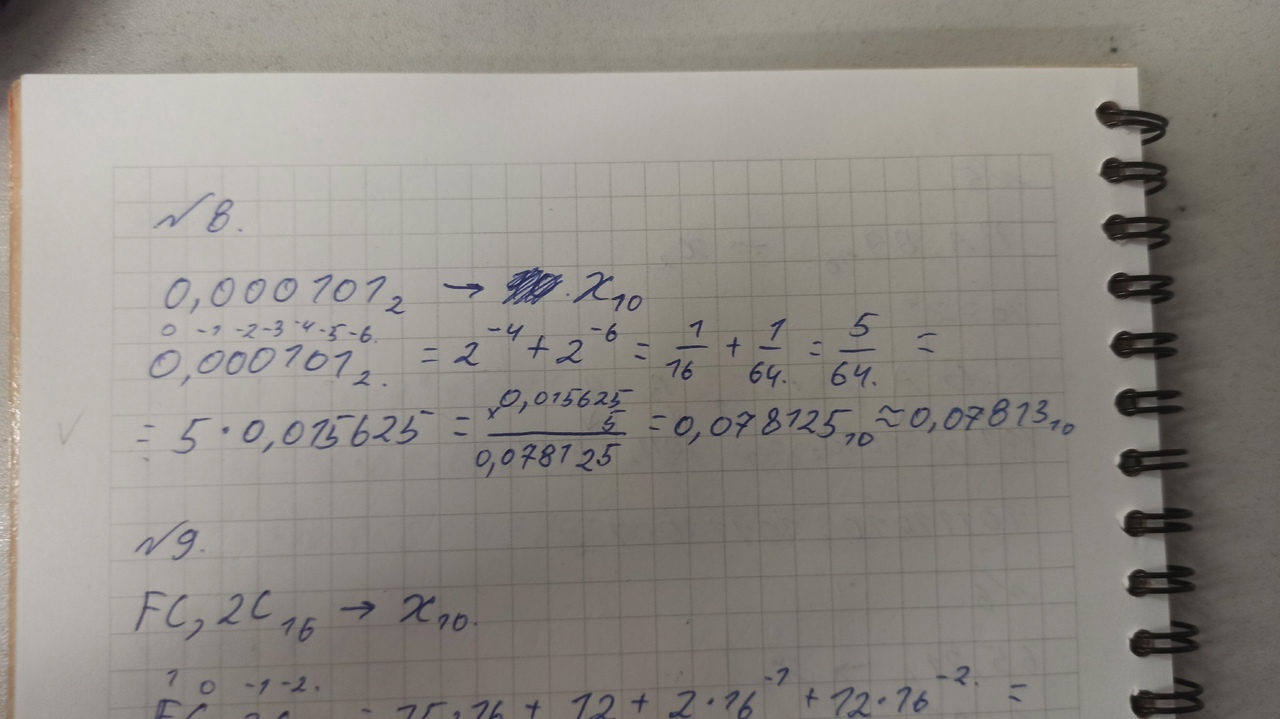 №8.
0,000101₂ → x₁₀
0 -1 -2 -3 -4 -5 -6.
0,000101₂. = 2⁻⁴ + 2⁻⁶ = 1/16 + 1/64. = 5/64. =
= 5 · 0,015625 = × 0,015625 5 0,078125 = 0,078125₁₀ ≈ 0,07813₁₀
№9.
FC,2C₁₆ → x₁₀.
1 0 -1 -2.
FC,2C = 15·16 + 12 + 2·16⁻¹ + 12·16⁻². =